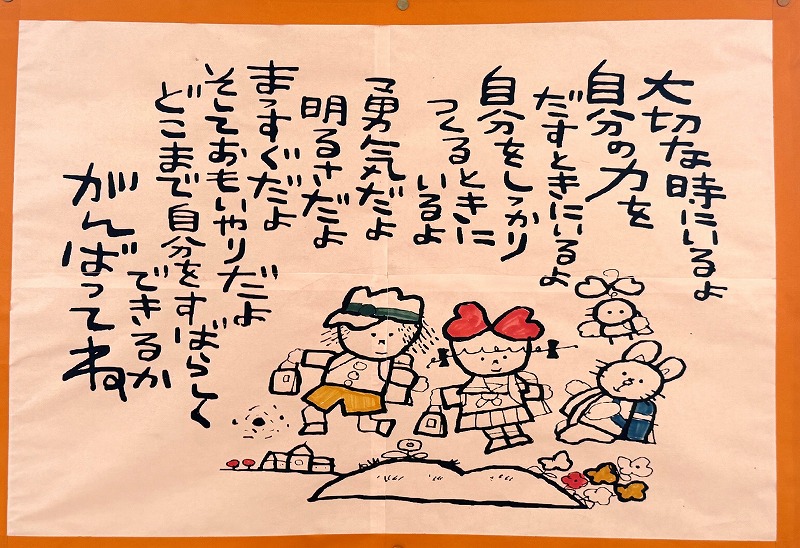 大切な時にいるよ
自分の力を
だすときにいるよ
自分をしっかり
つくるときに
いるよ
勇気だよ
明るさだよ
まっすぐだよ
そしておもいやりだよ
どこまで自分をすばらしく
できるか
がんばってね